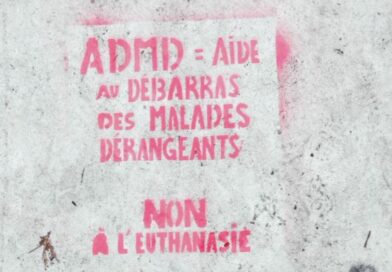 ADMD = AiDE
AU DÉBARRAS
DES MALADES
DÉRANGEANTS
NON
À L'EUTHANASIE